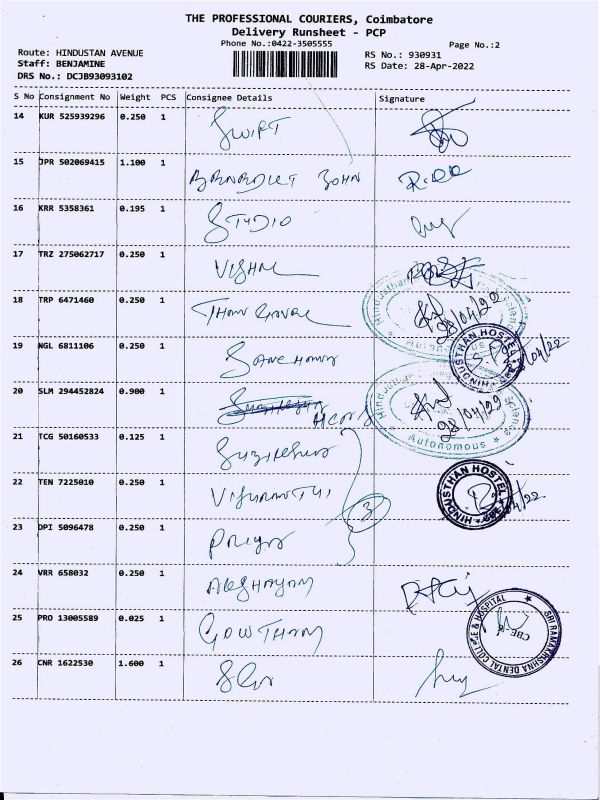 THE PROFESSIONAL COURIERS, Coimbatore
Delivery Runsheet - PCP
Phone No.:0422-3505555
Page No.:2
Route: HINDUSTAN AVENUE
RS No.: 930931
Staff: BENJAMINE
RS Date: 28-Apr-2022
DRS No.: DCJB93093102
S No Consignment No Weight PCS Consignee Details Signature
14 KUR 525939296 0.250 1 SWIFT
15 JPR 502069415 1.100 1 JOHN
16 KRR 5358361 0.195 1 STUDIO
17 TRZ 275062717 0.250 1 VISHNU
18 TRP 6471460 0.250 1 28/04/22
19 NGL 6811106 0.250 1
HINDUSTHAN HOSTEL
20 SLM 294452824 0.900 1 28/04/22
Autonomous
21 TCG 50160533 0.125 1
22 TEN 7225010 0.250 1 3
HINDUSTHAN HOSTEL
23 DPI 5096478 0.250 1 PRIYA
24 VRR 658032 0.250 1 AKSHAYAM
25 PRO 13005589 0.025 1 GOWTHAM
SRI RAMAKRISHNA DENTAL COLLEGE & HOSPITAL
CBE-6
26 CNR 1622530 1.600 1